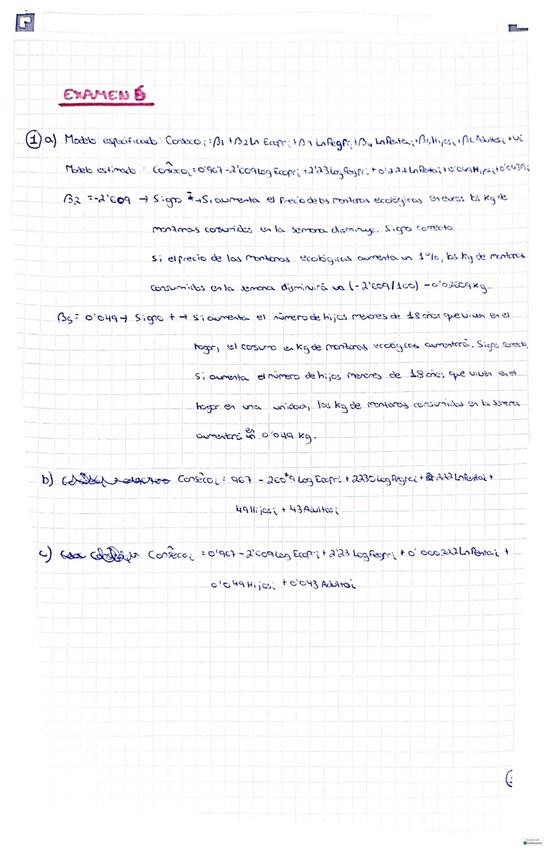 EXAMEN 5
1 a) Modelo especificado: Conseco i = β1 + β2 Ln Ecopr i + β3 Ln Regpr i + β4 Ln Renta i + β5 Hijos i + β6 Adultos i + ui
Modelo estimado: Conseco i = 0'967 - 2'609 Log Ecopr i + 2'23 Log Regpr i + 0'222 Ln Renta i + 0'049 Hijos i + 0'043
β2 = -2'609 → Signo - → Si aumenta el precio de las manzanas ecológicas en euros los kg de
manzanas consumidos en la semana disminuye. Signo correcto.
Si el precio de las manzanas ecológicas aumenta un 1%, los kg de manzanas
consumidos en la semana disminuirá un (-2'609/100) -0'02609 kg.
β5 = 0'049 → Signo + → Si aumenta el número de hijos menores de 18 años que viven en el
hogar, el consumo en kg de manzanas ecológicas aumentará. Signo correcto.
Si aumenta el número de hijos menores de 18 años que viven en el
hogar en una unidad, los kg de manzanas consumidos en la semana
aumentará en 0'049 kg.
b) Conseco i = 967 - 2609 Log Ecopr i + 2230 Log Regpr i + 222 Ln Renta i +
49 Hijos i + 43 Adultos i
c) Conseco i = 0'967 - 2'609 Log Ecopr i + 2'23 Log Regpr i + 0'000222 Ln Renta i +
0'049 Hijos i + 0'043 Adultos i